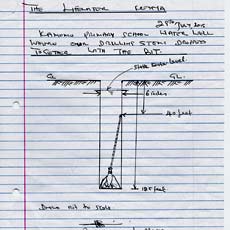 THE LIBERATOR KENYA
25th July 2015
KAMUNU PRIMARY SCHOOL WATER WELL
WHERE OUR DRILLING STEMS DROPPED
TOGETHER WITH THE BIT.
Static water level.
GL GL.
6 inches
40 feet
185 feet
Drawn not to scale